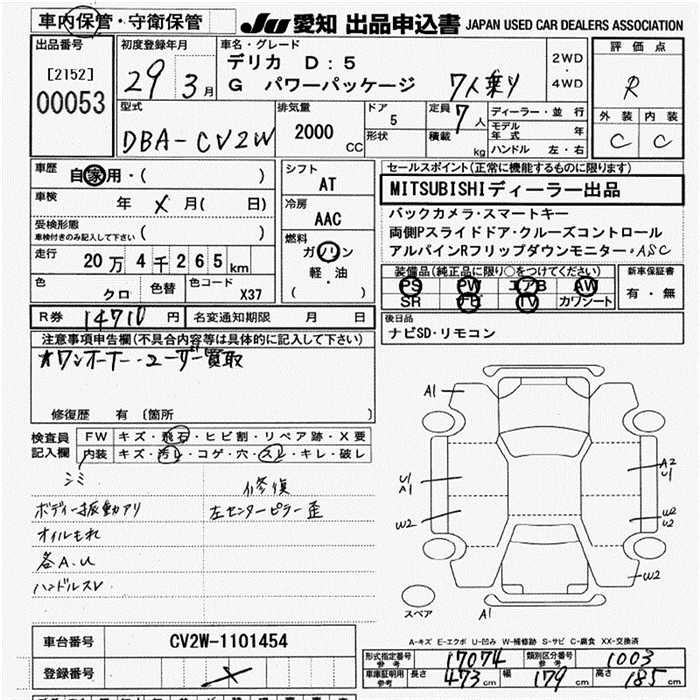 車内保管・守衛保管
JU 愛知 出品申込書 JAPAN USED CAR DEALERS ASSOCIATION
出品番号
[2152]
00053
初度登録年月
29 3月
車名・グレード
デリカ D:5
G パワーパッケージ 7人乗り
2WD
・
4WD
評価点
R
外装 内装
C C
型式
DBA-CV2W
排気量
2000
CC
ドア
5
形状
定員
7人
積載
kg
ディーラー・並行
モデル年式 年
ハンドル 左・右
車歴
自家用・( )
車検
年 メ 月( 日)
受検形態
車検付きのみ記入して下さい( )
走行
20万4千265km
色
クロ
色替
色コード
X37
シフト
AT
冷房
AAC
燃料
ガソリン
軽・油
( )
セールスポイント(正常に機能するものに限ります)
MITSUBISHIディーラー出品
バックカメラ・スマートキー
両側Pスライドドア・クルーズコントロール
アルパインRフリップダウンモニター・ASC
装備品(純正品に限り○をつけてください)
PS PW エアB AW
SR TV カワシート
新車保証書
有・無
R券 14710円 名変通知期限 月 日
後日品
ナビSD・リモコン
注意事項申告欄(不具合内容等は具体的に記入して下さい)
★ワンオーナー・ユーザー買取
修復歴 有(箇所 )
検査員記入欄
FW キズ・飛石・ヒビ割・リペア跡・X要
内装 キズ・汚レ・コゲ・穴・スレ・キレ・破レ
シミ
ボディー振動アリ
オイルもれ
各A.U
ハンドルスレ
修復
左センターピラー歪
A1
U1
A1
W2
A2
U1
W2
U2
W2
スペア
A1
A-キズ E-エクボ U-凹み W-補修跡 S-サビ C-腐食 XX-交換済
車台番号 CV2W-1101454
登録番号
形式指定番号 参考 17074 類別区分番号 参考 1003
車庫証明用 参考 長さ 473cm 幅 179cm 高さ 185cm